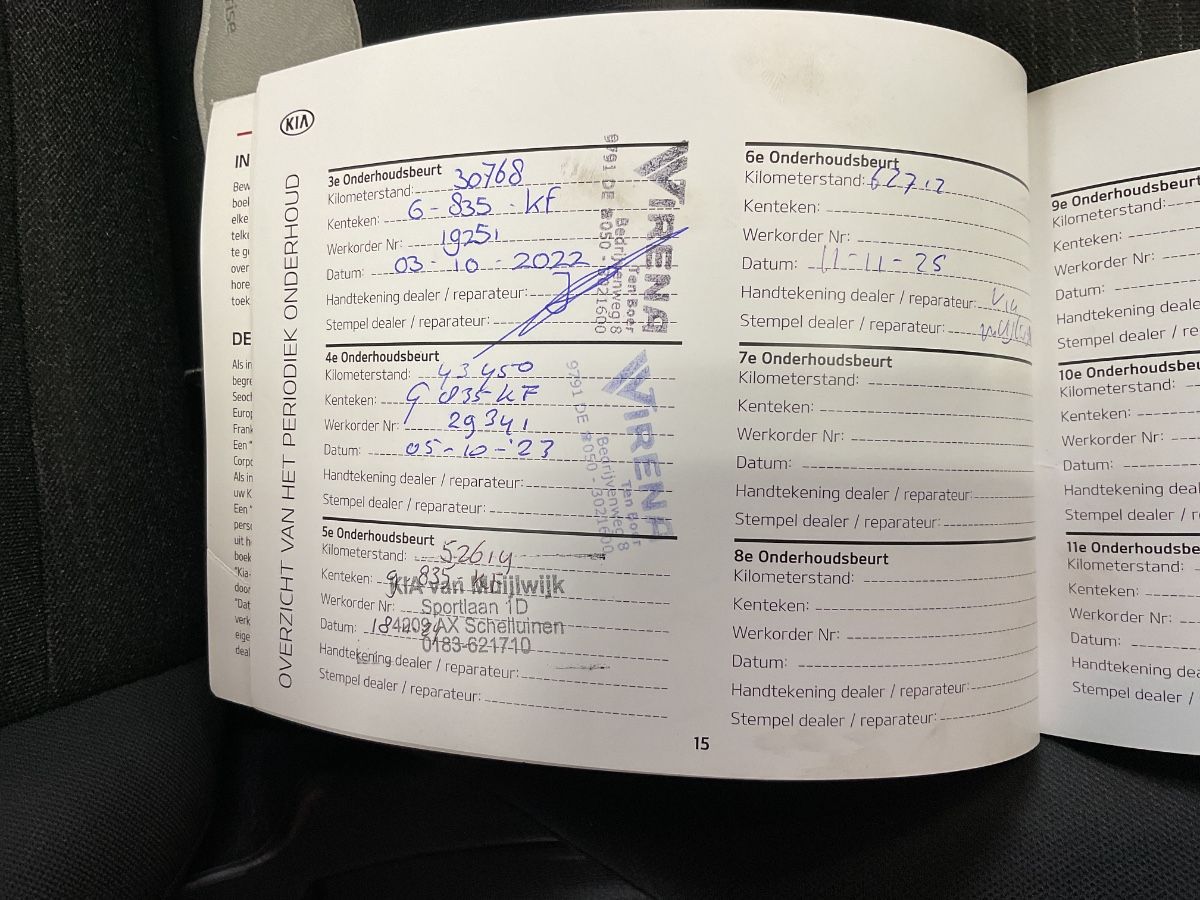 rise
KIA
OVERZICHT VAN HET PERIODIEK ONDERHOUD
IN
Bew
boel
elke
telke
te ge
over
hore
toek
DE
Als in
begre
Seoc
Europ
Frank
Een "
Corpo
Als in
uw K
Een "
perso
uit h
boek
"Kia-
door
"Dat
verk
eige
deal
3e Onderhoudsbeurt
Kilometerstand: 30768
Kenteken: G-835-KF
Werkorder Nr: 19251
Datum: 03-10-2022
Handtekening dealer / reparateur:
Stempel dealer / reparateur:
VIRENA
Ten Boer
Bedrijvenweg 8
9791 DE 8050 - 3021600
4e Onderhoudsbeurt
Kilometerstand: 43450
Kenteken: G 835-KF
Werkorder Nr: 29341
Datum: 05-10-'23
Handtekening dealer / reparateur:
Stempel dealer / reparateur:
VIRENA
Ten Boer
Bedrijvenweg 8
9791 DE 8050 - 3021600
5e Onderhoudsbeurt
Kilometerstand: 52614
Kenteken: G 835 KF
Werkorder Nr:
Datum:
Handtekening dealer / reparateur:
Stempel dealer / reparateur:
KIA van Muijlwijk
Sportlaan 1D
4209 AX Schelluinen
0183-621710
6e Onderhoudsbeurt
Kilometerstand: 62712
Kenteken:
Werkorder Nr:
Datum: 11-11-25
Handtekening dealer / reparateur:
Stempel dealer / reparateur:
7e Onderhoudsbeurt
Kilometerstand:
Kenteken:
Werkorder Nr:
Datum:
Handtekening dealer / reparateur:
Stempel dealer / reparateur:
8e Onderhoudsbeurt
Kilometerstand:
Kenteken:
Werkorder Nr:
Datum:
Handtekening dealer / reparateur:
Stempel dealer / reparateur:
15
9e Onderhoudsbeurt
Kilometerstand:
Kenteken:
Werkorder Nr:
Datum:
Handtekening dealer
Stempel dealer / re
10e Onderhoudsbeurt
Kilometerstand:
Kenteken:
Werkorder Nr:
Datum:
Handtekening deal
Stempel dealer / r
11e Onderhoudsbe
Kilometerstand:
Kenteken:
Werkorder Nr:
Datum:
Handtekening dea
Stempel dealer /